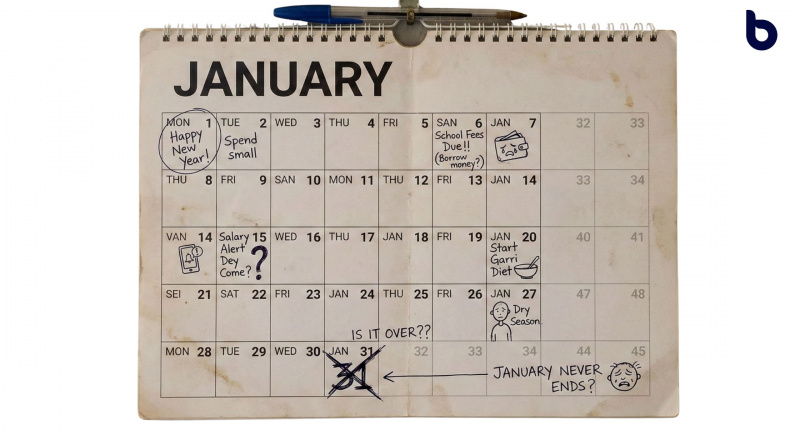 b
JANUARY
MON 1 TUE 2 WED 3 THU 4 FRI 5 SAN 6 JAN 7 32 33
Happy
New
Year!
Spend
small
School Fees
Due!!
(Borrow
money?)
THU 8 FRI 9 SAN 10 MON 11 THU 12 FRI 13 JAN 14 33 34
VAN 14 Salary 15 WED 16 THU 17 JAN 18 FRI 19 JAN 20 40 41
Alert
Dey
Come? ?
Start
Garri
Diet
SEI 21 SAT 22 FRI 23 JAN 24 THU 25 FRI 26 JAN 27 47 48
Dry
Season
IS IT OVER??
MON 28 TUE 29 WED 30 JAN 31 32 33 34 44 45
31
JANUARY NEVER
ENDS?